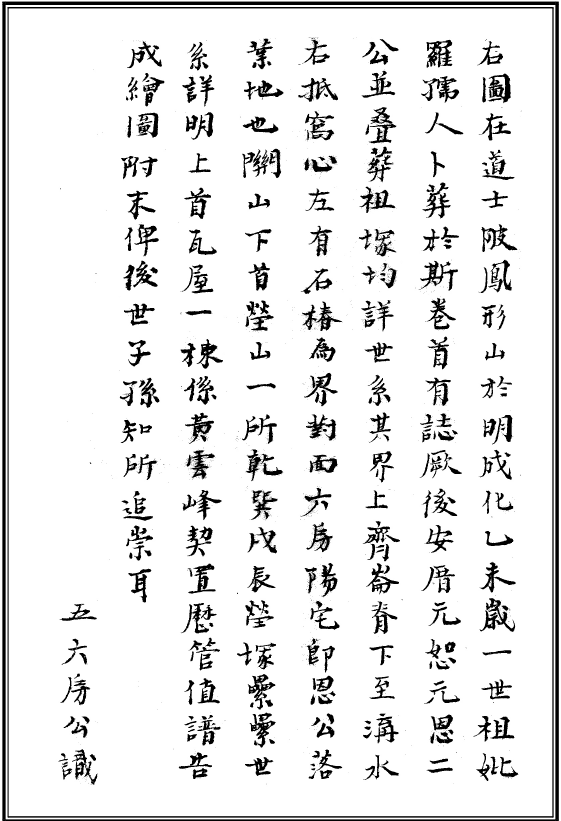 右圖在道士陂鳳形山於明成化乙未歲一世祖妣
羅孺人卜葬於斯卷首有誌厥後安厝元恕元恩二
公並疊葬祖塚均詳世系其界上齊崙脊下至溝水
右抵窩心左有石樁為界對面六房陽宅即恩公落
業地也關山下首塋山一所乾巽戌辰塋塚纍纍世
系詳明上首瓦屋一棟係黃雲峰契置歷管值譜告
成繪圖附末俾後世子孫知所追崇耳
五六房公識